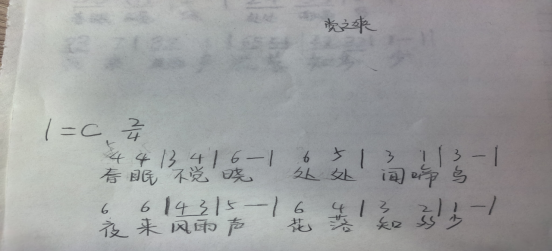 1=C 2/4
4 4 | 3 4 | 6 - | 6 5 | 3 1 | 3 - |
春眠 不觉 晓 处处 闻啼鸟
6 6 | 4 3 | 5 - | 6 4 | 3 2 | 1 - |
夜来风雨声 花落知多少